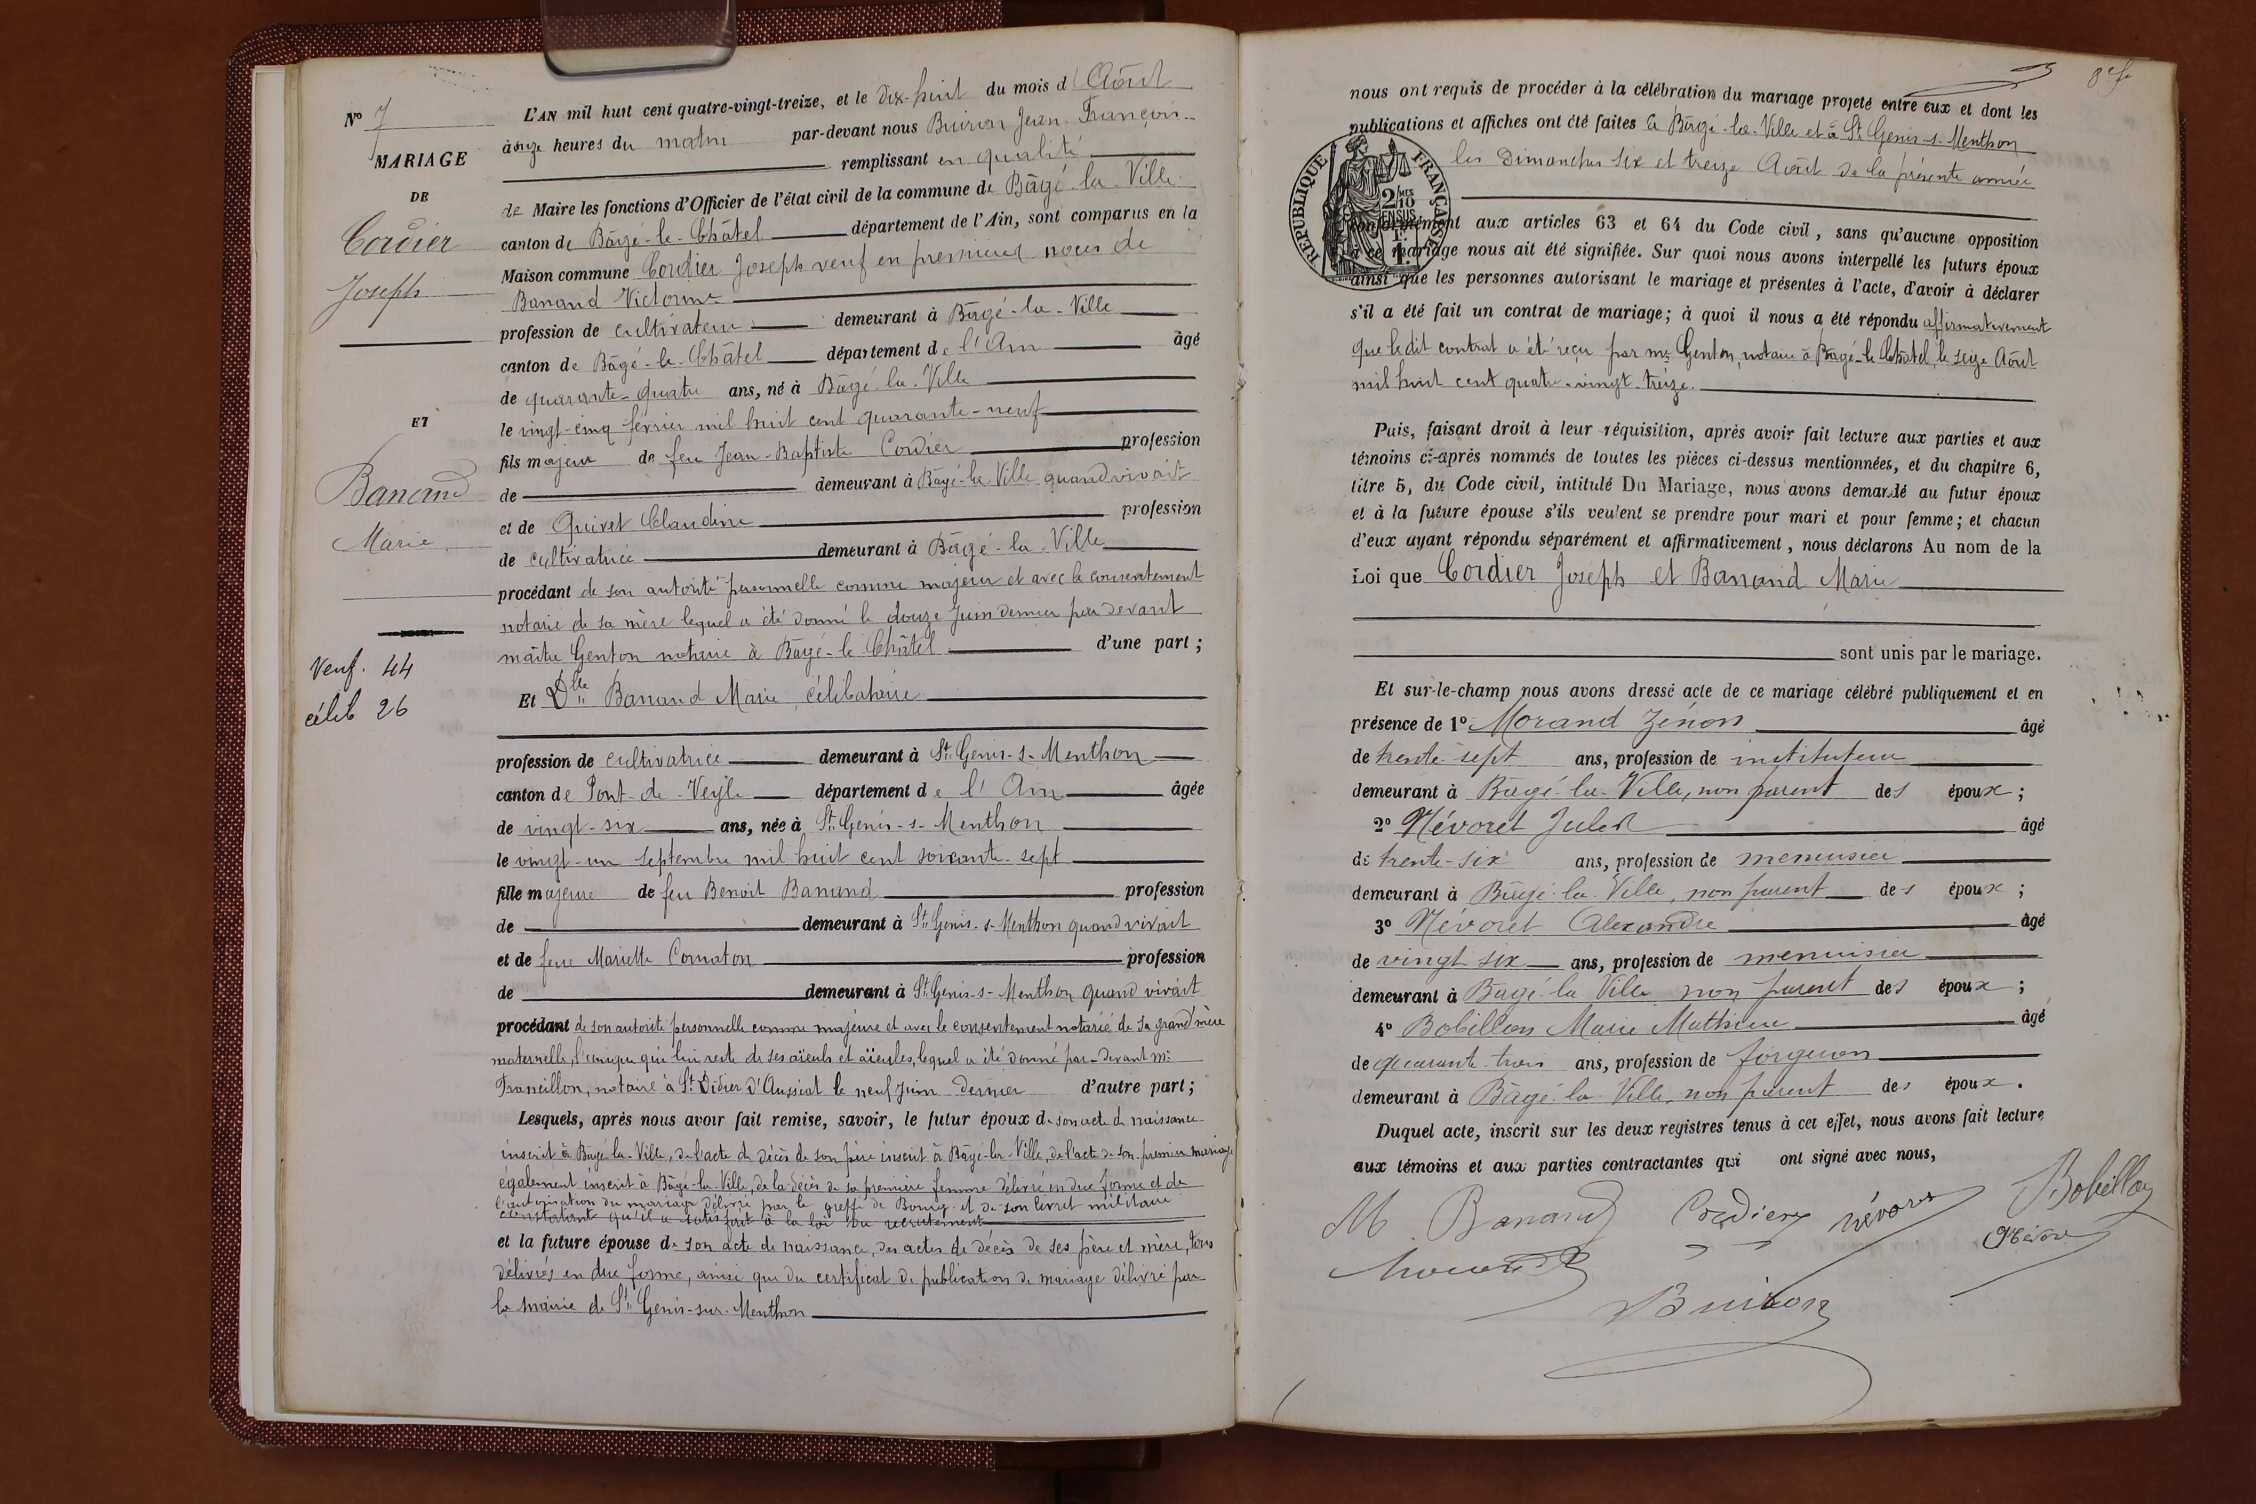 N° 7
MARIAGE
DE
Cordier
Joseph
ET
Banand
Marie
Veuf. 44
célib 26
L'AN mil huit cent quatre-vingt-treize, et le dix-huit du mois d' Août
à onze heures du matin par-devant nous Buiron Jean François
remplissant en qualité
de Maire les fonctions d'Officier de l'état civil de la commune de Bâgé-la-Ville
canton de Bâgé-le-Châtel département de l'Ain, sont comparus en la
Maison commune Cordier Joseph veuf en premières noces de
Banand Victorine
profession de cultivateur demeurant à Bâgé-la-Ville
canton de Bâgé-le-Châtel département de l'Ain âgé
de quarante-quatre ans, né à Bâgé-la-Ville
le vingt-cinq février mil huit cent quarante-neuf
fils majeur de feu Jean-Baptiste Cordier profession
de demeurant à Bâgé-la-Ville quand vivait
et de Guivet Claudine profession
de cultivatrice demeurant à Bâgé-la-Ville
procédant de son autorité personnelle comme majeur et avec le consentement
notarié de sa mère lequel a été donné le douze Juin dernier par devant
maître Genton notaire à Bâgé-le-Châtel d'une part;
Et Dlle Banand Marie, célibataire
profession de cultivatrice demeurant à St Genis-s-Menthon
canton de Pont-de-Veyle département de l'Ain âgée
de vingt-six ans, née à St Genis-s-Menthon
le vingt-un septembre mil huit cent soixante-sept
fille majeure de feu Benoit Banand profession
de demeurant à St Genis-s-Menthon quand vivait
et de feue Mariette Comaton profession
de demeurant à St Genis-s-Menthon quand vivait
procédant de son autorité personnelle comme majeure et avec le consentement notarié de sa grand'mère
maternelle, l'unique qui lui reste de ses aïeuls et aïeules, lequel a été donné par-devant Me
Francillon, notaire à St Didier d'Aussiat le neuf Juin dernier d'autre part;
Lesquels, après nous avoir fait remise, savoir, le futur époux de son acte de naissance
inscrit à Bâgé-la-Ville, de l'acte de décès de son père inscrit à Bâgé-la-Ville, de l'acte de son premier mariage
également inscrit à Bâgé-la-Ville, de la décès de sa première femme délivré en due forme et de
l'autorisation du mariage délivré par le greffe de Bourg et de son livret militaire
constatant qu'il a satisfait à la loi du recrutement
et la future épouse de son acte de naissance, des actes de décès de ses père et mère, tous
délivrés en due forme, ainsi que du certificat de publication de mariage délivré par
la mairie de St Genis-sur-Menthon
nous ont requis de procéder à la célébration du mariage projeté entre eux et dont les
publications et affiches ont été faites à Bâgé-la-Ville et à St Genis-s-Menthon
les dimanches six et treize Août de la présente année
REPUBLIQUE FRANÇAISE
2/10 EN SUS
1 F.
conformément aux articles 63 et 64 du Code civil, sans qu'aucune opposition
à ce mariage nous ait été signifiée. Sur quoi nous avons interpellé les futurs époux
ainsi que les personnes autorisant le mariage et présentes à l'acte, d'avoir à déclarer
s'il a été fait un contrat de mariage; à quoi il nous a été répondu affirmativement
que le dit contrat a été reçu par me Genton, notaire à Bâgé-le-Châtel, le seize Août
mil huit cent quatre-vingt-treize.
Puis, faisant droit à leur réquisition, après avoir fait lecture aux parties et aux
témoins ci-après nommés de toutes les pièces ci-dessus mentionnées, et du chapitre 6,
titre 5, du Code civil, intitulé Du Mariage, nous avons demandé au futur époux
et à la future épouse s'ils veulent se prendre pour mari et pour femme; et chacun
d'eux ayant répondu séparément et affirmativement, nous déclarons Au nom de la
Loi que Cordier Joseph et Banand Marie
sont unis par le mariage.
Et sur-le-champ nous avons dressé acte de ce mariage célébré publiquement et en
présence de 1° Morand Zénon âgé
de trente-sept ans, profession de instituteur
demeurant à Bâgé-la-Ville, non parent des époux;
2° Névoret Jules âgé
de trente-six ans, profession de menuisier
demeurant à Bâgé-la-Ville, non parent des époux;
3° Névoret Alexandre âgé
de vingt six ans, profession de menuisier
demeurant à Bâgé la Ville non parent des époux;
4° Bobillon Marie Mathieu âgé
de quarante-trois ans, profession de forgeron
demeurant à Bâgé-la-Ville, non parent des époux.
Duquel acte, inscrit sur les deux registres tenus à cet effet, nous avons fait lecture
aux témoins et aux parties contractantes qui ont signé avec nous,
M Banand Cordier névoret Bobillon
Morand Névoret
Buiron